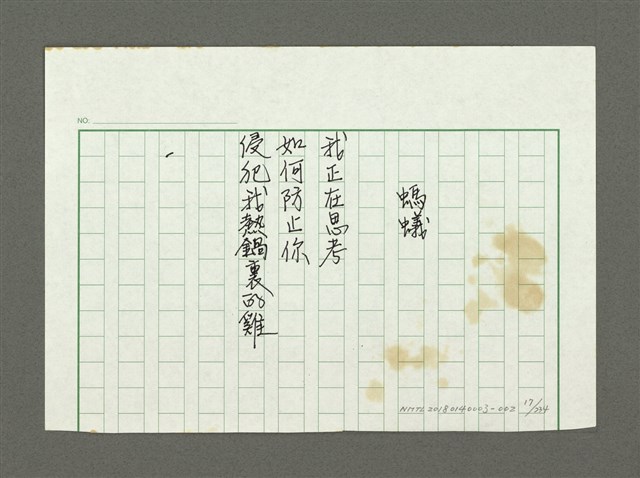 NO.
螞蟻
我正在思考
如何防止你
侵犯我熱鍋裏的雞
NMTL20180140003-002 17/224